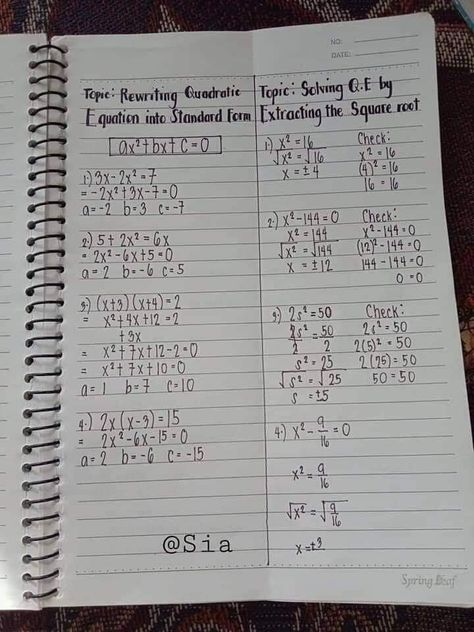 NO:
DATE:
Topic: Rewriting Quadratic
Equation into Standard Form
ax²+bx+c=0
1.) 3x-2x²=7
= -2x²+3x-7=0
a=-2 b=3 c=-7
2.) 5+2x²=6x
= 2x²-6x+5=0
a=2 b=-6 c=5
3.) (x+3)(x+4)=2
= x²+4x+12=2
+3x
= x²+7x+12-2=0
= x²+7x+10=0
a=1 b=7 c=10
4.) 2x(x-3)=15
= 2x²-6x-15=0
a=2 b=-6 c=-15
@Sia
Topic: Solving Q.E by
Extracting the Square root
1.) x²=16 Check:
√x²=√16 x²=16
x=±4 (4)²=16
16=16
2.) x²-144=0 Check:
x²=144 x²-144=0
√x²=√144 (12)²-144=0
x=±12 144-144=0
0=0
3.) 2s²=50 Check:
2s²/2=50/2 2s²=50
2(5)²=50
s²=25 2(25)=50
√s²=√25 50=50
s=±5
4.) x²-9/16=0
x²=9/16
√x²=√9/16
x=±3
Spring Leaf